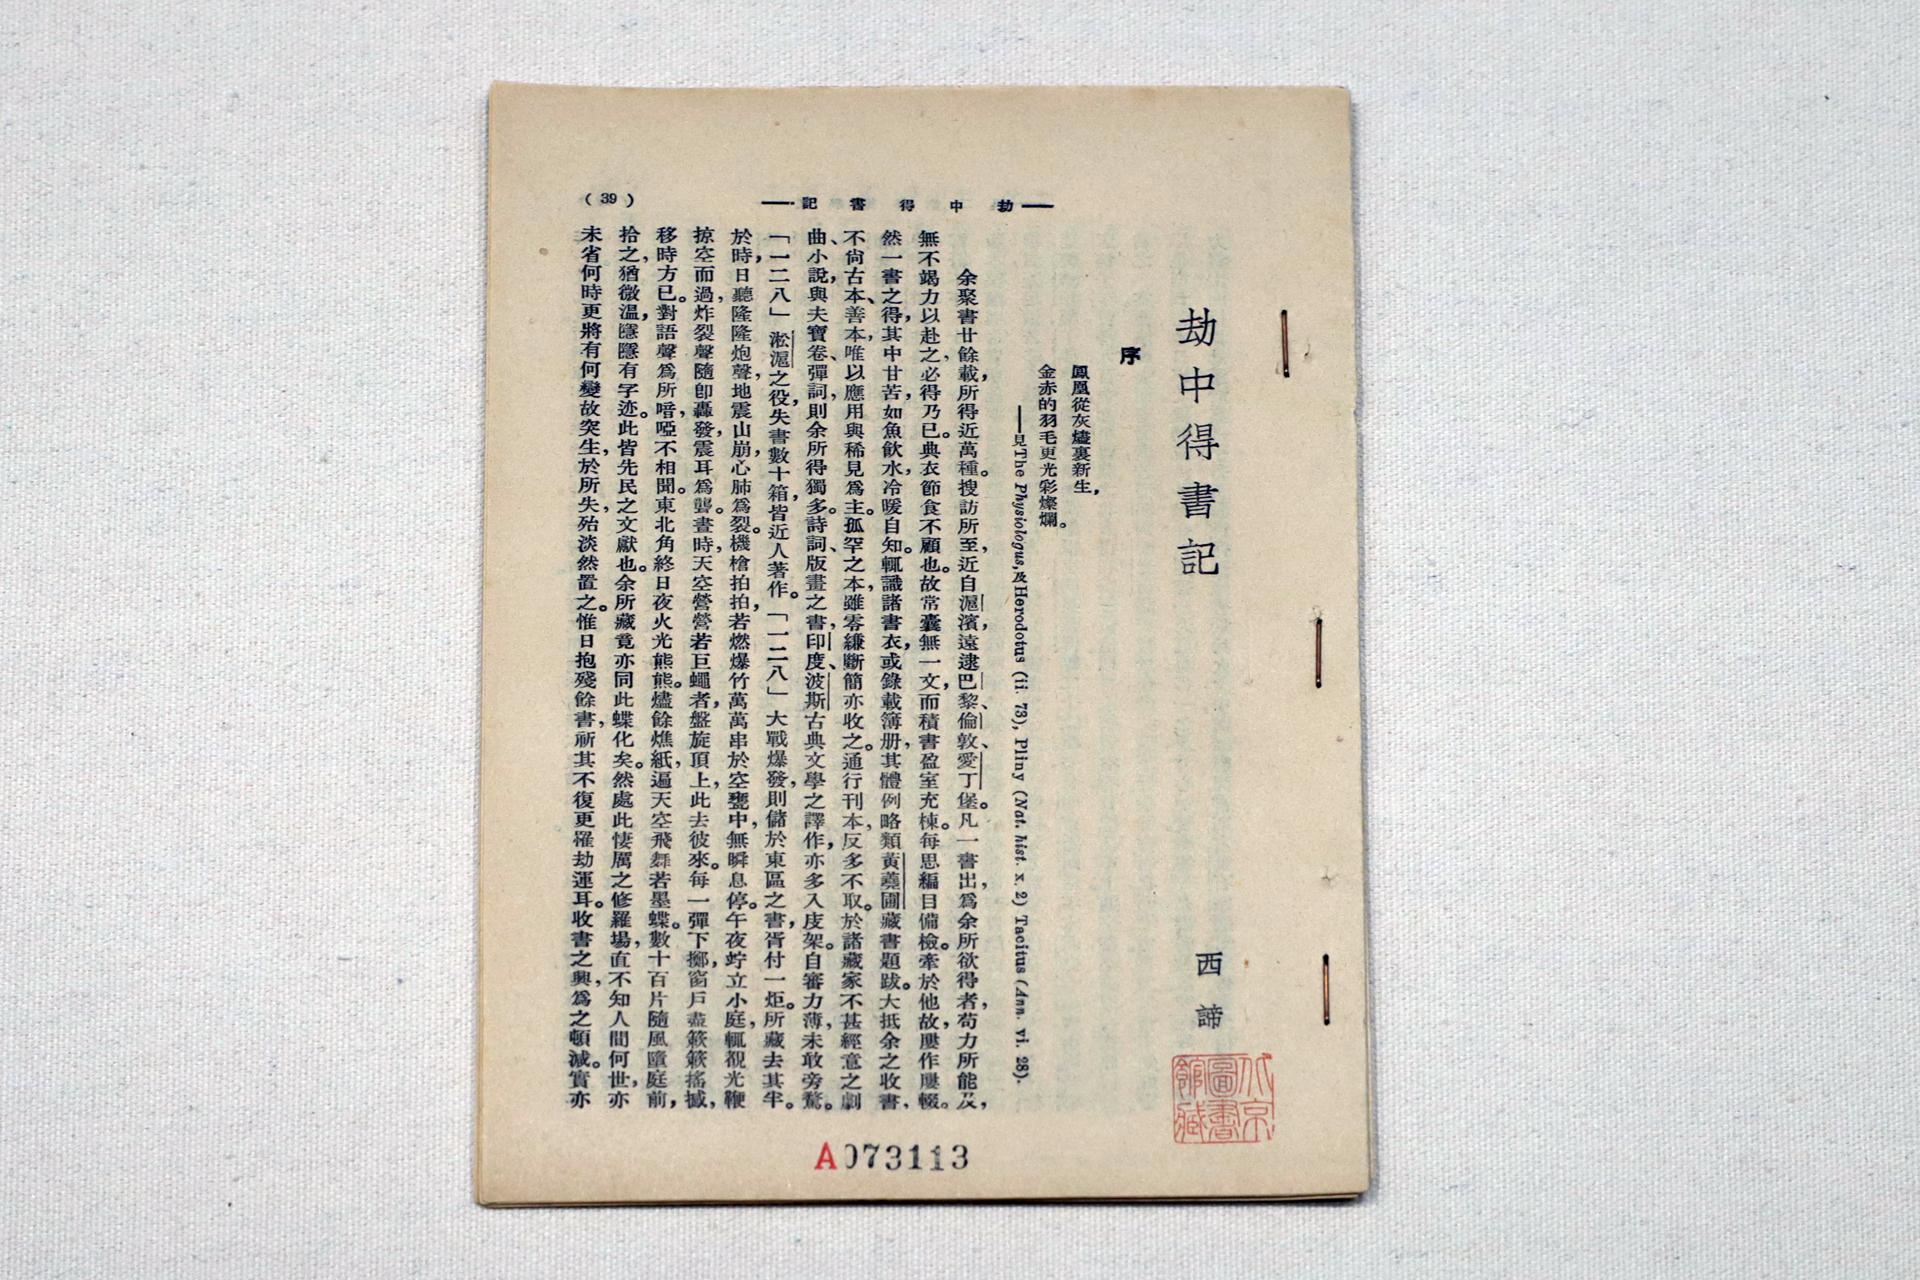 劫中得書記
西諦
北京圖書館藏
序
鳳凰從灰燼裏新生，
金赤的羽毛更光彩燦爛。
——見The Physiologus,及Herodotus (ii. 73), Pliny (Nat. hist. x. 2) Tacitus (Ann. vi. 28).
余聚書廿餘載，所得近萬種。搜訪所至，近自滬濱，遠逮巴黎、倫敦、愛丁堡。凡一書出，爲余所欲得者，苟力所能及，
無不竭力以赴之，必得乃已。典衣節食不顧也。故常囊無一文，而積書盈室充棟。每思編目備檢。牽於他故，屢作屢輟。
然一書之得，其中甘苦，如魚飲水，冷暖自知。輒識諸書衣，或錄載簿册，其體例略類黃蕘圃藏書題跋。大抵余之收書，
不尚古本、善本，唯以應用與稀見爲主。孤罕之本，雖零縑斷簡亦收之。通行刊本，反多不取。於諸藏家不甚經意之劇
曲、小說，與夫寶卷、彈詞，則余所得獨多。詩詞、版畫之書，印度、波斯古典文學之譯作，亦多入庋架。自審力薄，未敢旁騖。
「一二八」淞滬之役，失書數十箱，皆近人著作。「一二八」大戰爆發，則儲於東區之書，胥付一炬。所藏去其半。
於時，日聽隆隆炮聲，地震山崩，心肺爲裂。機槍拍拍，若燃爆竹萬萬串於空甕中，無瞬息停。午夜竚立小庭，輒覩光鞭
掠空而過，炸裂聲隨即轟發，震耳爲聾。晝時，天空營營若巨蠅者，盤旋頂上，此去彼來。每一彈下擲，窗戶盡簌簌搖撼，
移時方已。對語聲爲所喑，啞不相聞。東北角終日夜火光熊熊。燼餘燋紙，遍天空飛舞若墨蝶。數十百片隨風墮庭前，
拾之，猶微溫，隱隱有字迹。此皆先民之文獻也。余所藏竟亦同此蝶化矣。然處此悽厲之修羅場，直不知人間何世，亦
未省何時更將有何變故突生，於所失，殆淡然置之。惟日抱殘餘書，祈其不復更罹劫運耳。收書之興，爲之頓減。實亦
——劫中得書記——
( 39 )
A073113